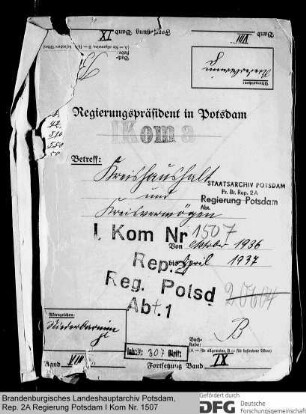 Fortsetzung Band IX
VIII
Regierungspräsident in Potsdam
I Kom a
Betreff:
Kreishaushalt
und
Kreisvermögen
STAATSARCHIV POTSDAM
Pr. Br. Rep. 2A
Regierung Potsdam
Abt.
I Kom Nr 1507
Von Oktober 1936
bis April 1937
Rep. 2
Reg. Potsd
Abt. 1
Niederbarnim
B
Inhalt: 307 Blatt
Band VIII
Fortsetzung Band IX
Brandenburgisches Landeshauptarchiv Potsdam,
Rep. 2A Regierung Potsdam I Kom Nr. 1507
Gefördert durch
DFG Deutsche
Forschungsgemeinschaft